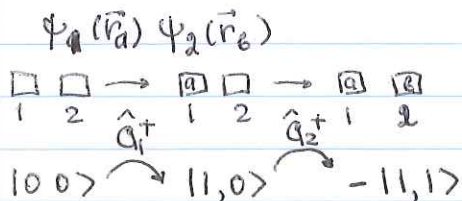 ψ₁(r⃗a) ψ₂(r⃗b)
□ □ → [a] □ → [a] [b]
1 2 â₁⁺ 1 2 â₂⁺ 1 2
|0 0> |1,0> -|1,1>